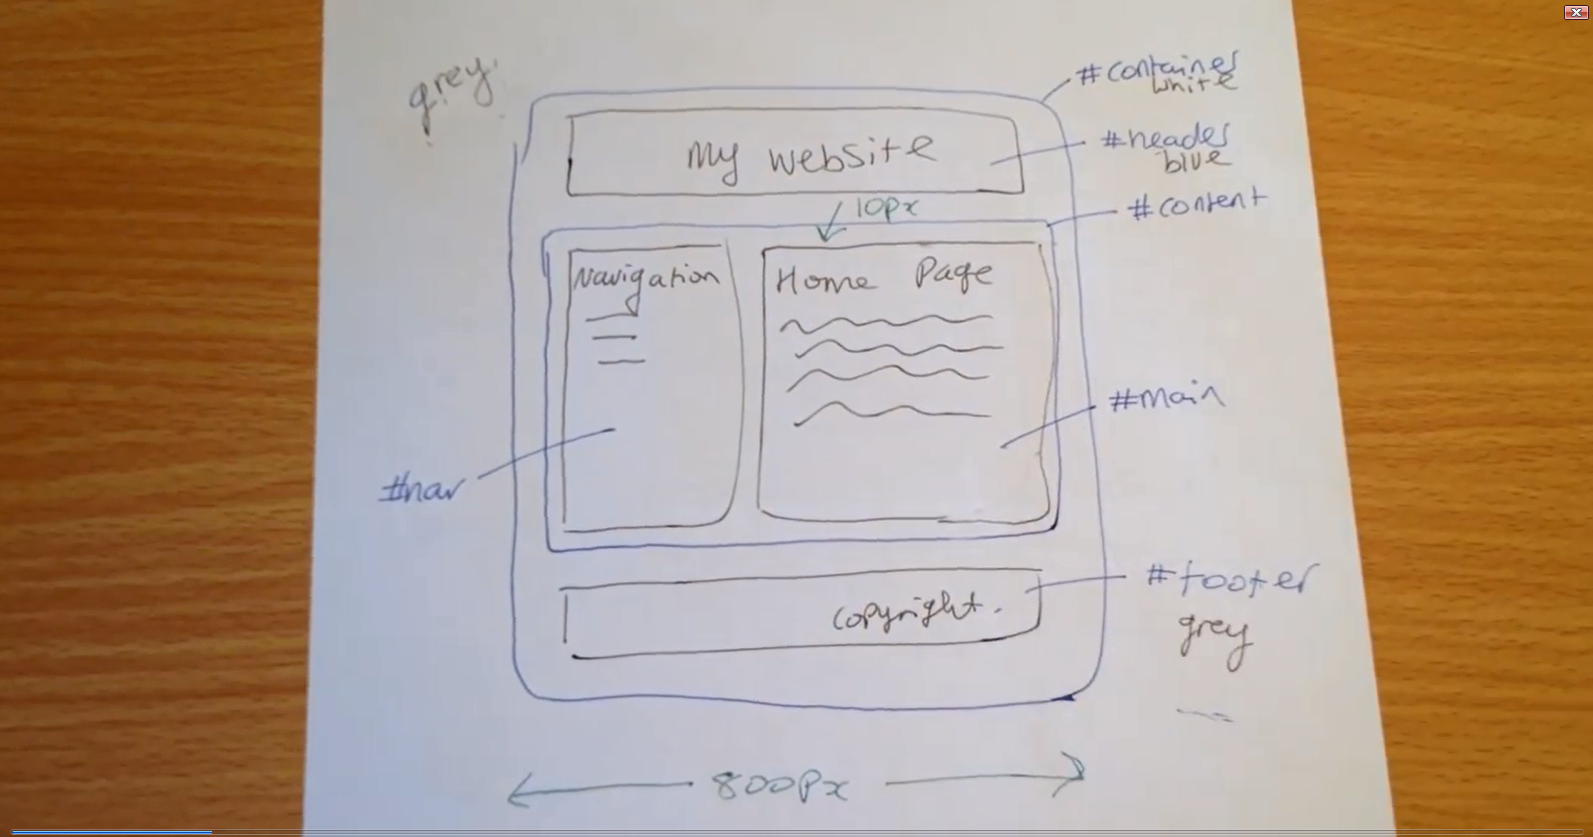 grey.
#container
white
My website
#header
blue
10px
#content
Navigation
Home Page
#main
#nav
#footer
copyright.
grey
800px